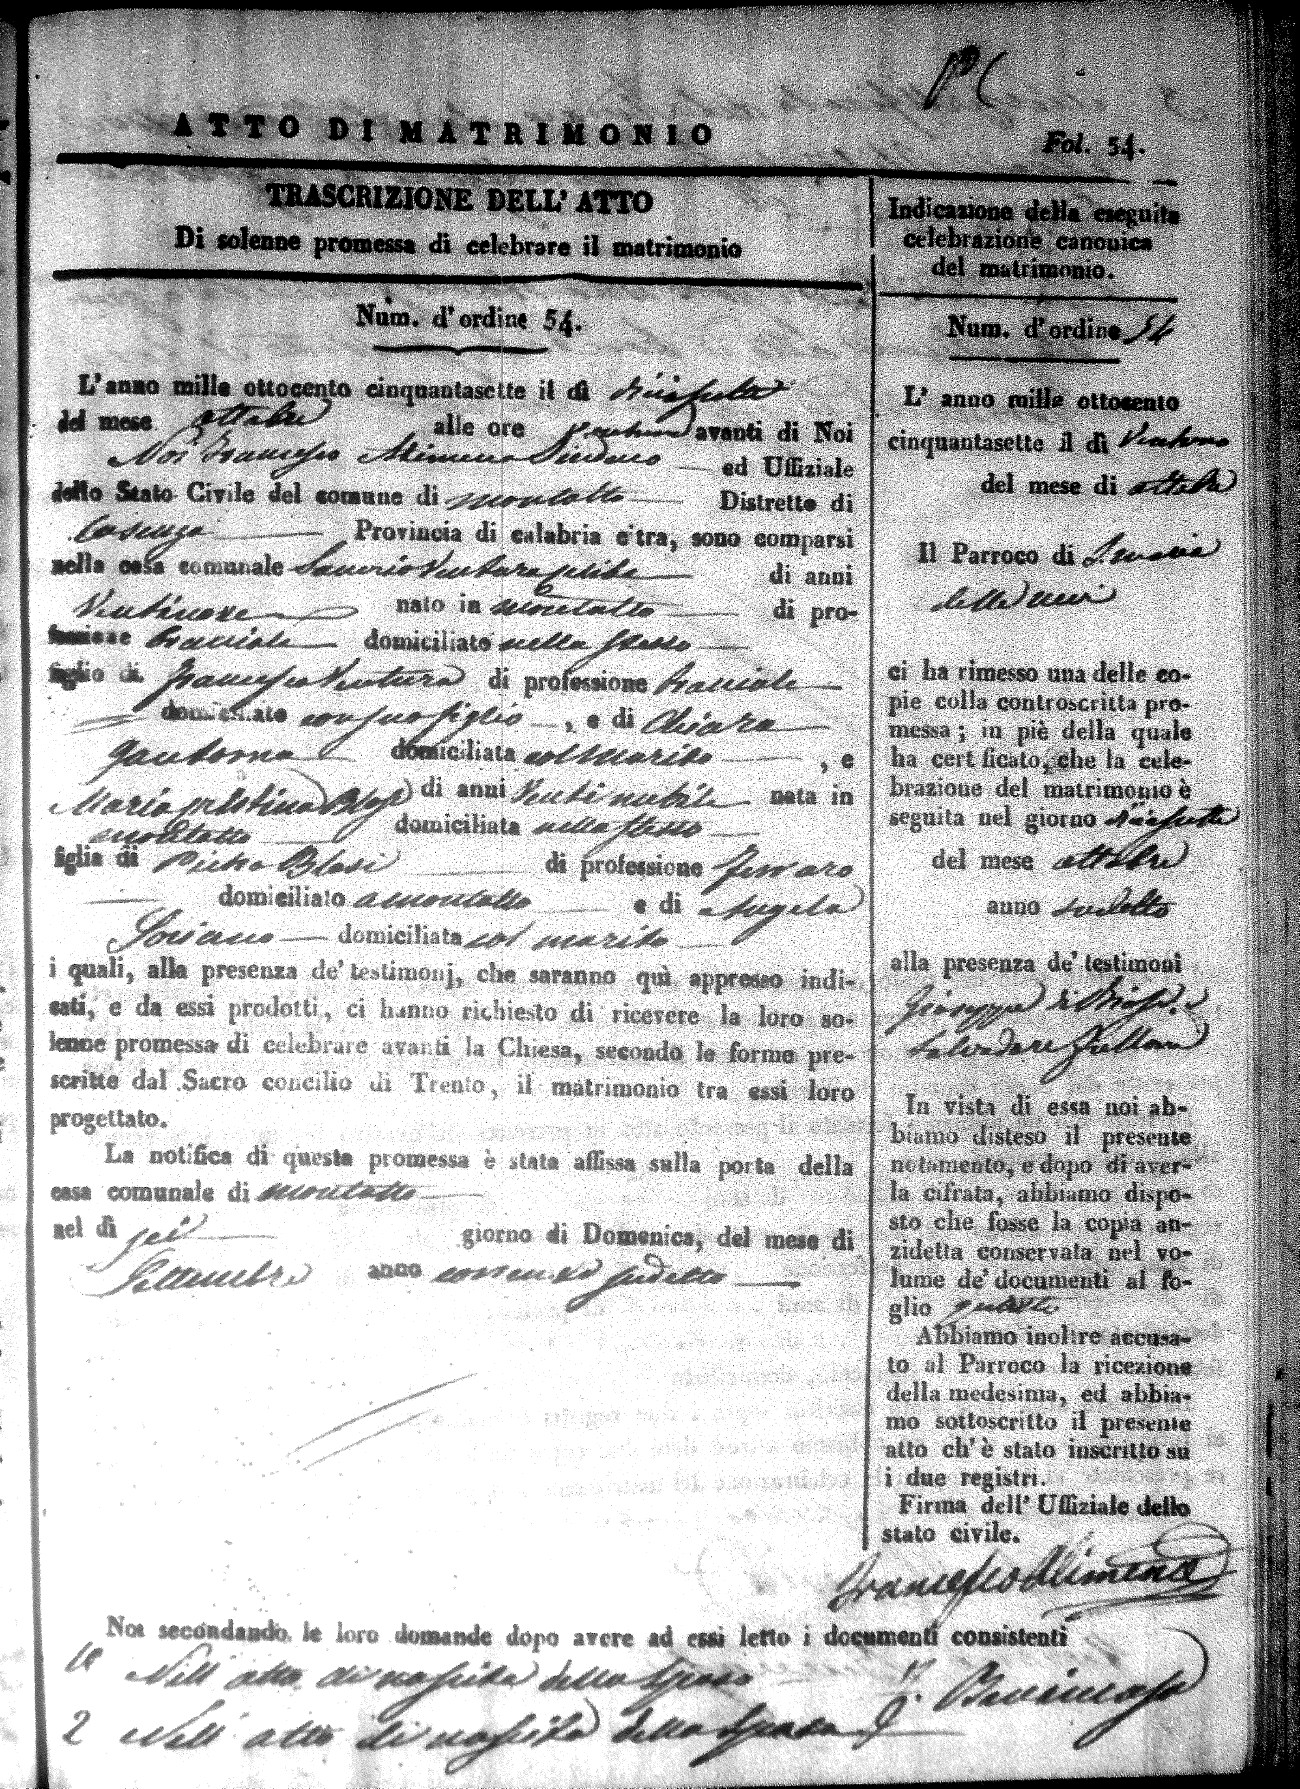 ATTO DI MATRIMONIO
Fol. 54.
TRASCRIZIONE DELL' ATTO
Di solenne promessa di celebrare il matrimonio
Num. d' ordine 54.
L' anno mille ottocento cinquantasette il dì diciasette
del mese ottobre alle ore avanti di Noi
Noi Francesco Alimena Sindaco ed Uffiziale
dello Stato Civile del comune di Montalto Distretto di
Cosenza Provincia di calabria citra, sono comparsi
nella casa comunale Saverio Ventura celibe di anni
Ventinove nato in Montalto di pro-
fessione bracciale domiciliato nella stesso
figlio di Francesco Ventura di professione bracciale
domiciliato con suo figlio, e di Chiara
domiciliata col marito, e
Maria Blasi di anni Venti nubile nata in
Montalto domiciliata nella stesso
figlia di Pietro Blasi di professione ferraro
domiciliato a Montalto e di Angela
Soriano domiciliata col marito
i quali, alla presenza de' testimonj, che saranno quì appresso indi-
cati, e da essi prodotti, ci hanno richiesto di ricevere la loro so-
lenne promessa di celebrare avanti la Chiesa, secondo le forme pre-
scritte dal Sacro concilio di Trento, il matrimonio tra essi loro
progettato.
La notifica di questa promessa è stata affissa sulla porta della
casa comunale di Montalto
nel dì sei giorno di Domenica, del mese di
Settembre anno corrente sudetto
Indicazione della eseguita
celebrazione canonica
del matrimonio.
Num. d' ordine 54
L' anno mille ottocento
cinquantasette il dì Ventuno
del mese di ottobre
Il Parroco di S. Maria
della
ci ha rimesso una delle co-
pie colla controscritta pro-
messa; in piè della quale
ha cert ficato, che la cele-
brazione del matrimonio è
seguita nel giorno diciasette
del mese ottobre
anno sudetto
alla presenza de' testimoni
Giuseppe di
Salvadore
In vista di essa noi ab-
biamo disteso il presente
notamento, e dopo di aver-
la cifrata, abbiamo dispo-
sto che fosse la copia an-
zidetta conservata nel vo-
lume de' documenti al fo-
glio
Abbiamo inoltre accusa-
to al Parroco la ricezione
della medesima, ed abbia-
mo sottoscritto il presente
atto ch' è stato inscritto su
i due registri.
Firma dell' Uffiziale dello
stato civile.
Francesco Alimena
Noi secondando le loro domande dopo avere ad essi letto i documenti consistenti
1º Nell' atto di nascita dello sposo
2 Nell' atto di nascita della sposa